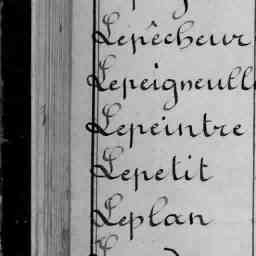 Lepêcheur
Lepeigneul
Lepeintre
Lepetit
Leplan